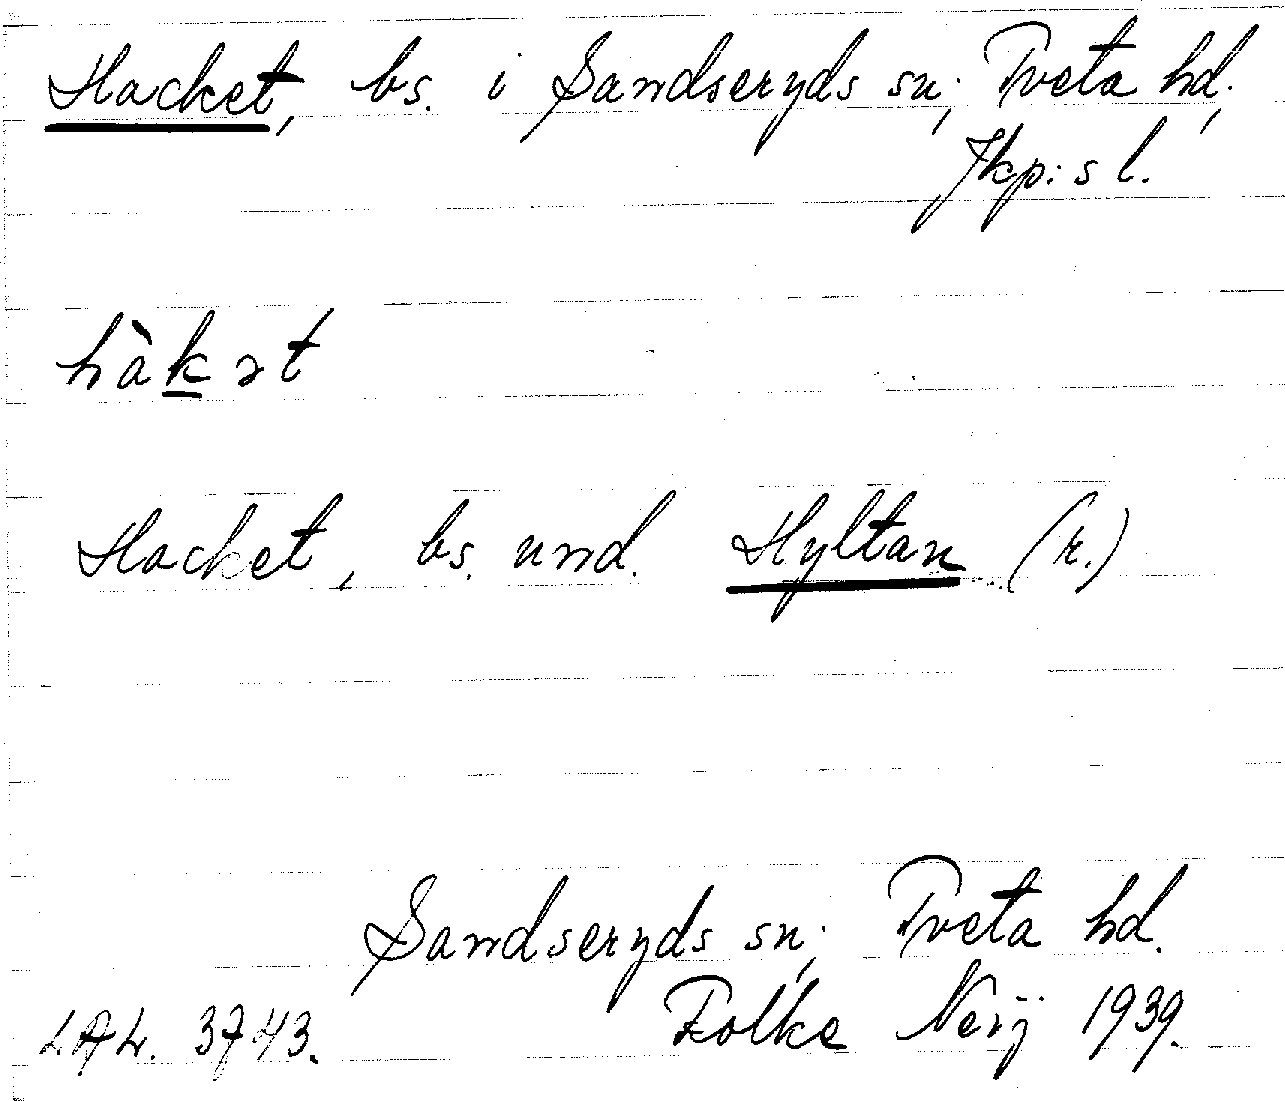 Hacket, bs. i Sandseryds sn; Tveta hd;
Jkp:s l.
hàkət
Hacket, bs. und. Hyltan (k.)
Sandseryds sn; Tveta hd.
Folke Neij 1939.
LAL. 3743.